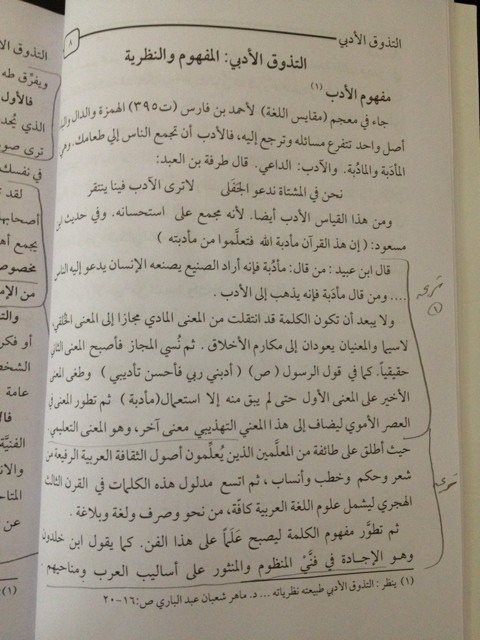 التذوق الأدبي
٨
التذوق الأدبي: المفهوم والنظرية
مفهوم الأدب (١)
جاء في معجم (مقاييس اللغة) لأحمد بن فارس (ت٣٩٥) الهمزة والدال والباء
أصل واحد تتفرع مسائله وترجع إليه، فالأدب أن تجمع الناس إلي طعامك. وهي
المأدَبة والمأدُبة. والآدب: الداعي. قال طرفة بن العبد:
نحن في المشتاة ندعو الجَفَلى لاترى الآدب فينا ينتقر
ومن هذا القياس الأدب أيضا. لأنه مجمع على استحسانه. وفي حديث ابن
مسعود: ( إن هذا القرآن مأدبة الله فتعلَّموا من مأدبته )
قال ابن عبيد : من قال: مأدُبة فإنه أراد الصنيع يصنعه الإنسان يدعو إليه الناس
.... ومن قال مأدَبة فإنه يذهب إلى الأدب .
ولا يبعد أن تكون الكلمة قد انتقلت من المعنى المادي مجازا إلى المعنى الخُلُقي
لاسيما والمعنيان يعودان إلى مكارم الأخلاق . ثم نُسي المجاز فأصبح المعنى الثاني
حقيقياً. كما في قول الرسول ( ص) ( أدبني ربي فأحسن تأديبي ) وطغى المعنى
الأخير على المعنى الأول حتى لم يبق منه إلا استعمال(مأدبة ) ثم تطور المعنى في
العصر الأموي ليضاف إلى هذا المعني التهذيبي معنى آخر، وهو المعنى التعليمي.
حيث أطلق على طائفة من المعلَّمين الذين يُعلِّمون أصول الثقافة العربية الرفيعة من
شعر وحكم وخطب وأنساب ، ثم اتسع مدلول هذه الكلمات في القرن الثالث
الهجري ليشمل علوم اللغة العربية كافّة، من نحو وصرف ولغة وبلاغة .
ثم تطوَّر مفهوم الكلمة ليصبح عَلَماً على هذا الفن. كما يقول ابن خلدون
وهو الإجادة في فنَّيْ المنظوم والمنثور على أساليب العرب ومناحيهم .
(١) ينظر : التذوق الأدبي طبيعته نظرياته ... د. ماهر شعبان عبد الباري ص:١٦-٢٠